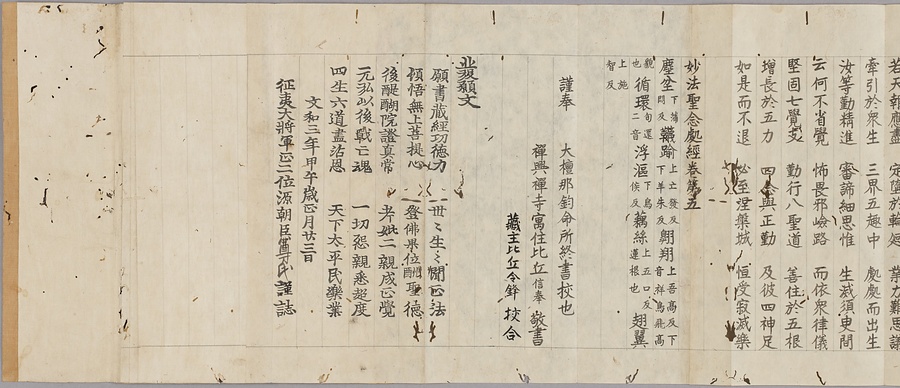 若天報應盡　定墮於輪廻　業力難思議
牽引於衆生　三界五趣中　處處而出生
汝等勤精進　審諦細思惟　生滅須臾間
云何不省覺　怖畏邪嶮路　而依衆律儀
堅固七覺支　勤行八聖道　善住於五根
增長於五力　四念與正勤　及彼四神足
如是而不退　必至涅槃城　恒受寂滅樂
妙法聖念處經卷第五
塵坌下蒲問反　韈踰上亡發反下羊朱反　翺翔上吾高反下音祥鳥飛高
也　循環二音　浮漚下烏侯反　藕絲上五口反蓮根也　翅翼
上施智反
謹奉　大檀那鈞命所終書挍也
禪興禪寺寓住比丘信奉敬書
藏主比丘令鋒　挍合
發願文
願書藏經功德力　世〻生〻聞正法
頓悟無上菩提心　登佛果位酬聖德
後醍醐院證真常　考妣二親成正覺
元弘以後戰亡魂　一切怨親悉超度
四生六道盡沾恩　天下太平民樂業
文和三年甲午歲正月廿三日
征夷大將軍正二位源朝臣尊氏謹誌